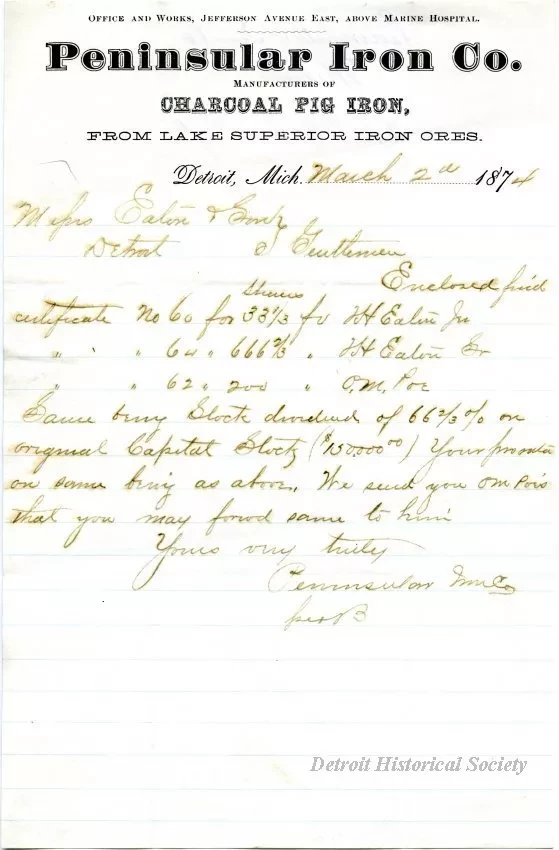 Office and Works, Jefferson Avenue East, above Marine Hospital.
Peninsular Iron Co.
Manufacturers of
CHARCOAL PIG IRON,
FROM LAKE SUPERIOR IRON ORES.
Detroit, Mich. March 2d 1874
Messrs Eaton &
Detroit Gentlemen
Enclosed find
Shares
certificate No 60 for 33 1/3 fv TH Eaton Jr
" " " 64 " 666 2/3 " TH Eaton Sr
" " 62 " 200 " O.M. Poe
Same being Stock dividend of 66 2/3 % on
original Capital Stock ($150,000 00) Your prorata
on same being as above. We send you OM Poe's
that you may forwd same to him
Yours very truly
Peninsular Iron Co
per B
Detroit Historical Society